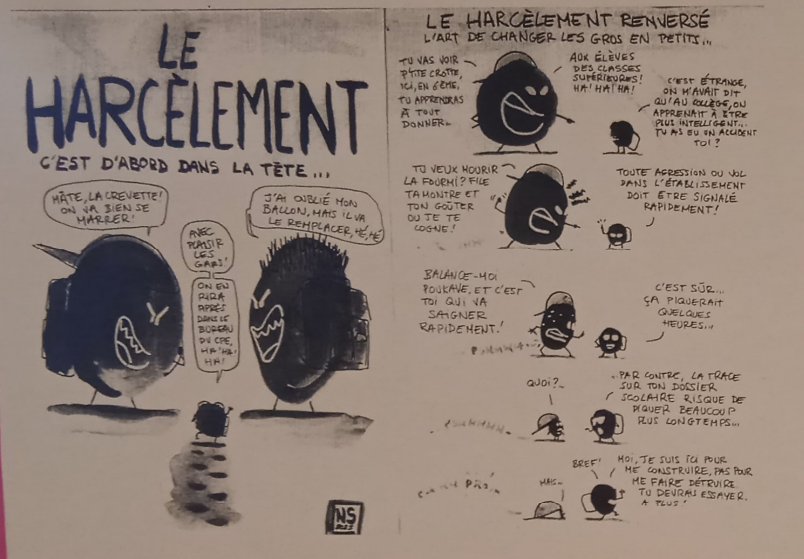 LE
HARCÈLEMENT
C'EST D'ABORD DANS LA TÊTE...
MÂTE, LA CREVETTE!
ON VA BIEN SE
MARRER!
AVEC
PLAISIR
LES
GARS!
ON EN
RIRA
APRÈS
DANS LE
BUREAU
DU CPE,
HA! HA!
HA!
J'AI OUBLIÉ MON
BALLON, MAIS IL VA
LE REMPLACER, HÉ, HÉ
NS
LE HARCÈLEMENT RENVERSÉ
L'ART DE CHANGER LES GROS EN PETITS...
TU VAS VOIR
P'TITE CROTTE,
ICI, EN 6ÈME,
TU APPRENDRAS
À TOUT
DONNER...
AUX ÉLÈVES
DES CLASSES
SUPÉRIEURES!
HA! HA! HA!
C'EST ÉTRANGE,
ON M'AVAIT DIT
QU'AU COLLÈGE, ON
APPRENAIT À ÊTRE
PLUS INTELLIGENT...
TU AS EU UN ACCIDENT
TOI?
TU VEUX MOURIR
LA FOURMI? FILE
TA MONTRE ET
TON GOÛTER
OU JE TE
COGNE!
TOUTE AGRESSION OU VOL
DANS L'ÉTABLISSEMENT
DOIT ÊTRE SIGNALÉ
RAPIDEMENT!
BALANCE-MOI
POUKAVE, ET C'EST
TOI QUI VA
SAIGNER
RAPIDEMENT!
C'EST SÛR...
ÇA PIQUERAIT
QUELQUES
HEURES...
QUOI?..
..PAR CONTRE, LA TRACE
SUR TON DOSSIER
SCOLAIRE RISQUE DE
PIQUER BEAUCOUP
PLUS LONGTEMPS...
MAIS..
BREF!
MOI, JE SUIS ICI POUR
ME CONSTRUIRE, PAS POUR
ME FAIRE DÉTRUIRE.
TU DEVRAIS ESSAYER.
À PLUS!